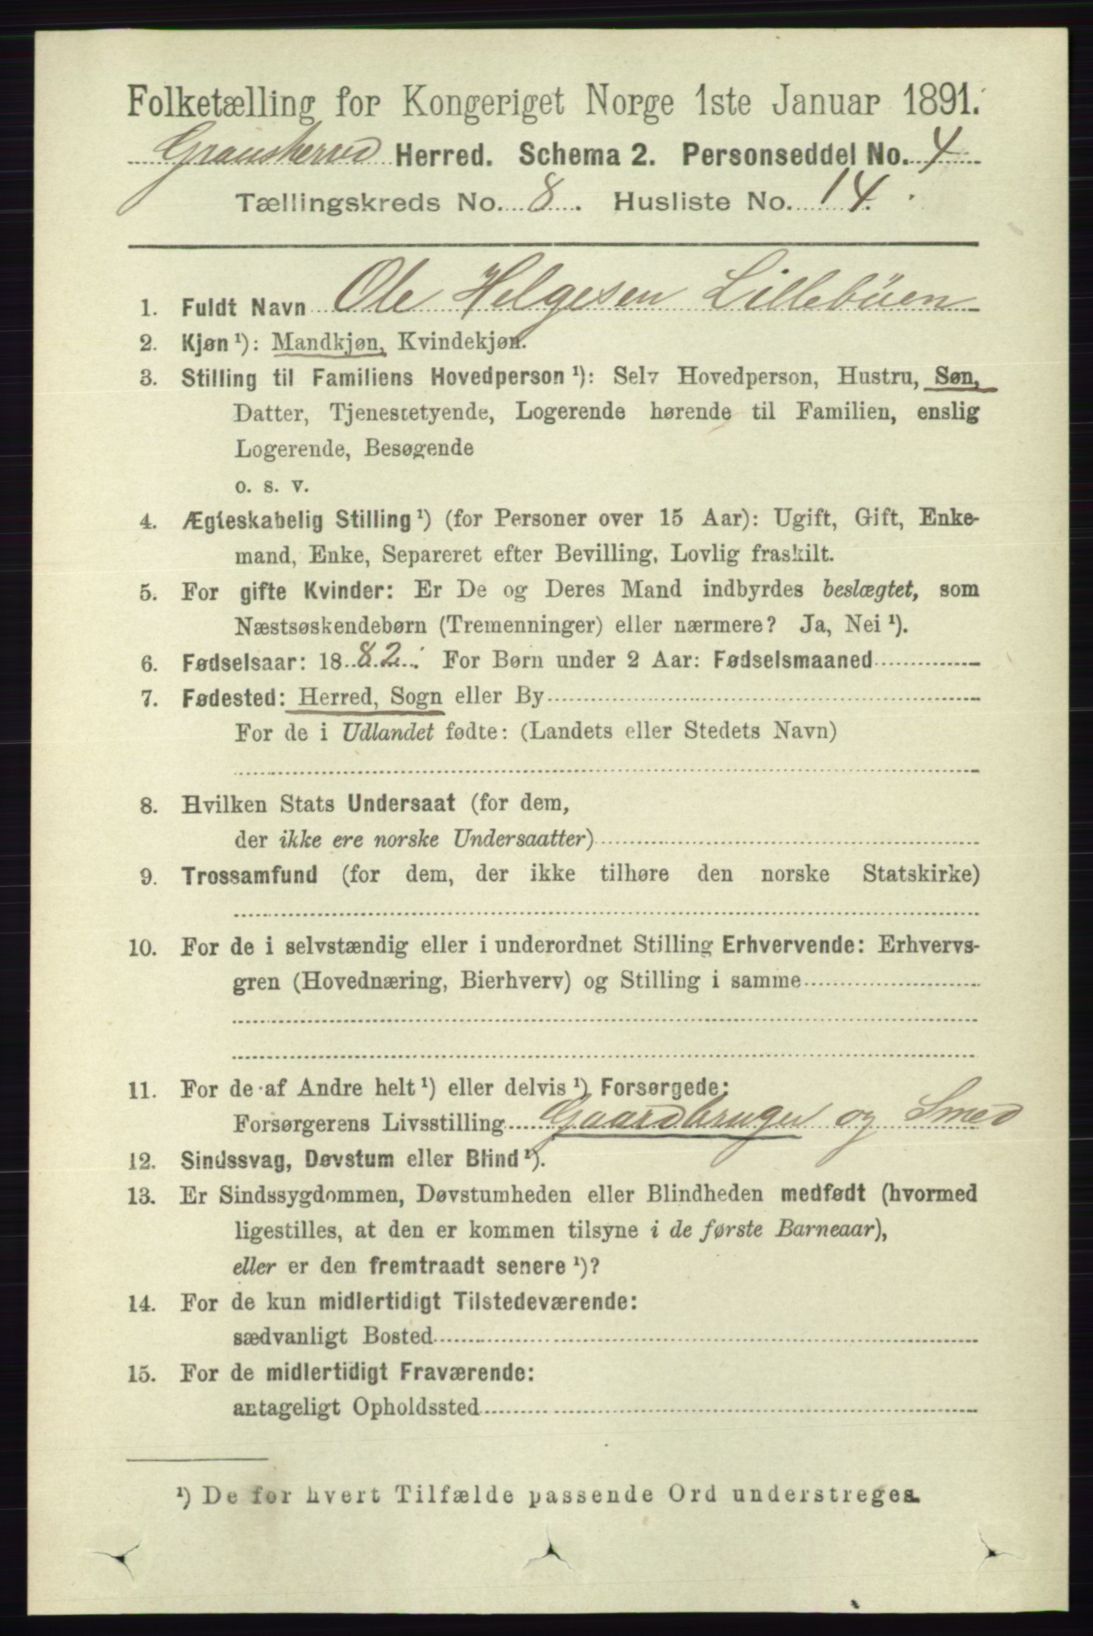 Folketælling for Kongeriget Norge 1ste Januar 1891.
Gransherred Herred. Schema 2. Personseddel No. 4
Tællingskreds No. 8. Husliste No. 14.
1. Fuldt Navn Ole Helgesen Lillebüen
2. Kjøn ¹): Mandkjøn, Kvindekjøn.
3. Stilling til Familiens Hovedperson ¹): Selv Hovedperson, Hustru, Søn,
Datter, Tjenestetyende, Logerende hørende til Familien, enslig
Logerende, Besøgende
o. s. v.
4. Ægteskabelig Stilling ¹) (for Personer over 15 Aar): Ugift, Gift, Enke-
mand, Enke, Separeret efter Bevilling, Lovlig fraskilt.
5. For gifte Kvinder: Er De og Deres Mand indbyrdes beslægtet, som
Næstsøskendebørn (Tremenninger) eller nærmere? Ja, Nei ¹).
6. Fødselsaar: 1882. For Børn under 2 Aar: Fødselsmaaned
7. Fødested: Herred, Sogn eller By
For de i Udlandet fødte: (Landets eller Stedets Navn)
8. Hvilken Stats Undersaat (for dem,
der ikke ere norske Undersaatter)
9. Trossamfund (for dem, der ikke tilhøre den norske Statskirke)
10. For de i selvstændig eller i underordnet Stilling Erhvervende: Erhvervs-
gren (Hovednæring, Bierhverv) og Stilling i samme
11. For de af Andre helt ¹) eller delvis ¹) Forsørgede:
Forsørgerens Livsstilling Gaardbruger og Smed
12. Sindssvag, Døvstum eller Blind ¹).
13. Er Sindssygdommen, Døvstumheden eller Blindheden medfødt (hvormed
ligestilles, at den er kommen tilsyne i de første Barneaar),
eller er den fremtraadt senere ¹)?
14. For de kun midlertidigt Tilstedeværende:
sædvanligt Bosted
15. For de midlertidigt Fraværende:
antageligt Opholdssted
¹) De for hvert Tilfælde passende Ord understreges.